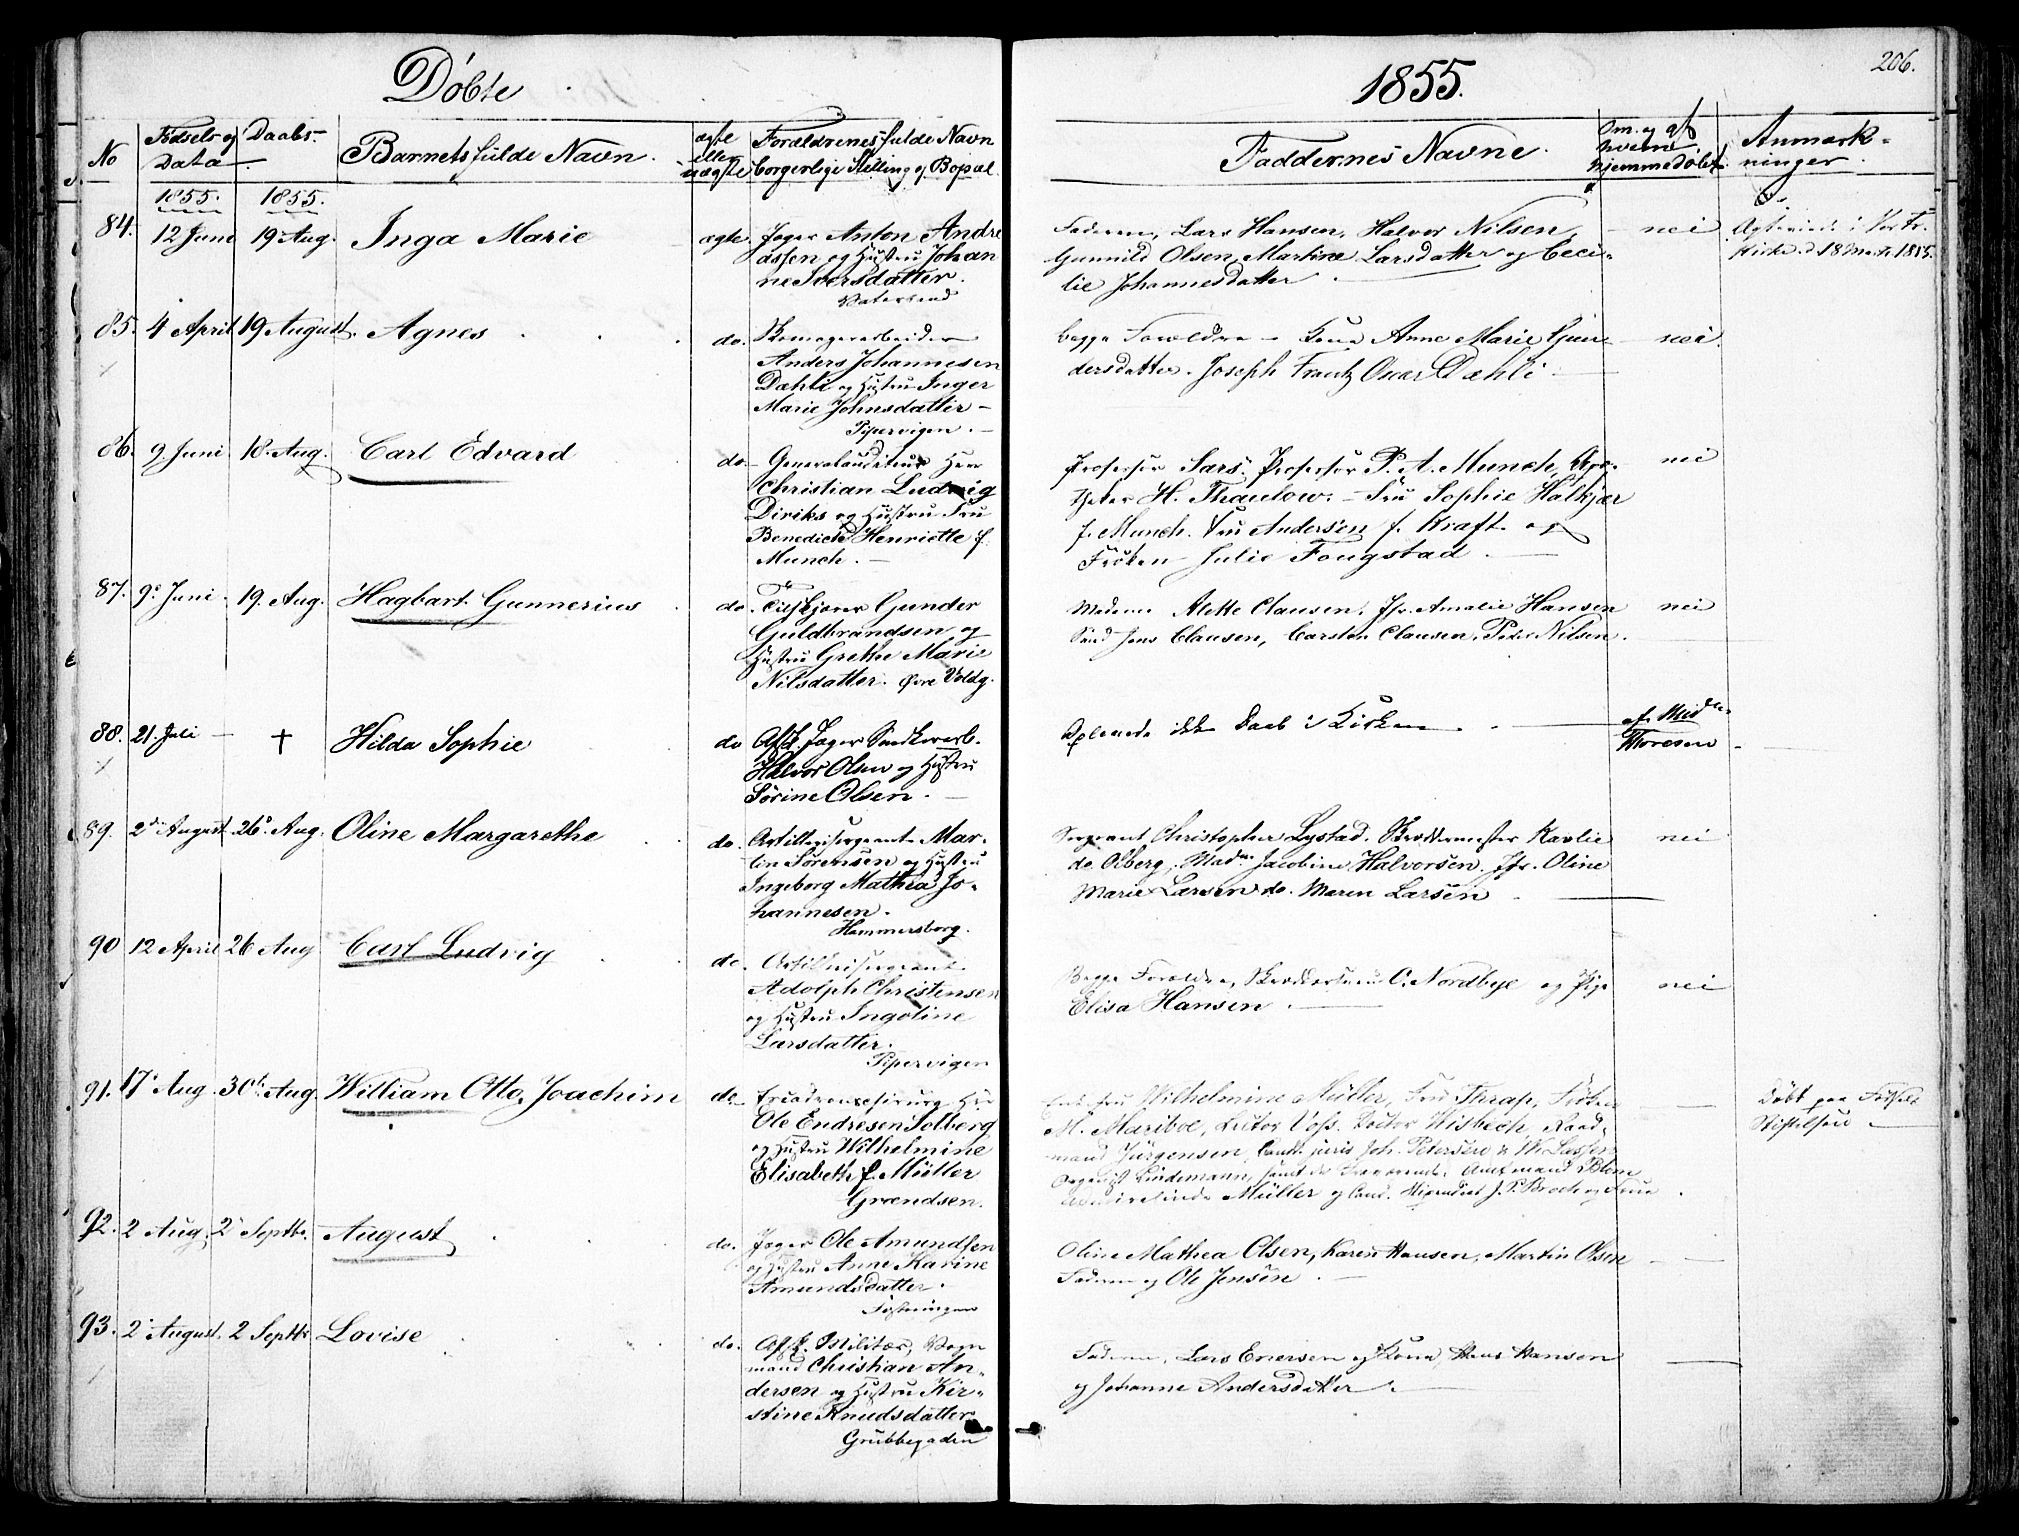 Döbte
1855.
206.
No
Födsels og
Data
Daabs-
Barnets fulde Navn.
ægte
eller
uægte
Forældrenes fulde Navn
borgerlige Stilling og Bopæl.
Faddernes Navne.
Om og af
hvem
hjemmedöbt.
Anmærk-
ninger.
1855.
1855.
84. 12 Juni 19 Aug. Inga Marie ægte. Jæger Anton Andre
assen og Hustru Johan
ne Iversdatter.
Faderen, Lars Hansen, Halvor Nilsen,
Gunnild Olsen, Martine Larsdatter og Ceci-
lie Johannesdatter
nei
18 Marts 1855.
85. 4 April 19 August. Agnes do. Skomagerarbeider
Anders Johannesen
Dæhli og Hustru Inger
Marie Johnsdatter -
Pipervigen. -
begge Forældre - Kone Anne Marie Gun-
dersdatter. Joseph Frantz Oscar Dæhli -
nei.
86. 9 Juni 18. Aug. Carl Edvard do - Generalauditeur Herr
Christian Ludvig
Diriks og Hustru Fru
Benedicte Henriette f.
Munch. -
Professor Sars. Professor P. A. Munch, Apo-
theker H. Thaulow. - Fru Sophie Halkjær
f. Munch. Fru Andersen f. Kraft og
Fröken Julie Fougstad -
nei
87. 9de Juni 19. Aug. Hagbart Gunnerius do. Gunder
Guldbrandsen og
Hustru Grethe Marie
Nilsdatter. Övre Voldg.
Madame Alette Clausen, Jfr. Amalie Hansen
Jens Clausen, Carsten Clausen, Peder Nilsen.
nei
88. 21. Juli - † Hilda Sophie do Afsk. Jæger
Halvor Olsen og Hustru
Sörine Olsen. -
Oplevede ikke Daab i Kirken
af Mad.
Thoresen
89. 2den August 26de Aug. Oline Margarethe do. Artillerisergeant Mar-
tin Sörensen og Hustru
Ingeborg Mathea Jo-
hannesen.
Hammersborg.
Sergeant Christopher Lystad. Skræddermester
Mad. Jacobine Halvorsen. Jfr. Oline
Marie Larsen do. Maren Larsen
nei
90 12 April 26 Aug Carl Ludvig do. Artillerisergeant
Adolph Christensen
og Hustru Ingoline
Larsdatter.
Pipervigen
Begge Forældre, C. Nordbye og Pige
Elisa Hansen.
nei
91. 17de Aug. 30te Aug. William Otto Joachim do Herr
Ole Endresen Solberg
og Hustru Wilhelmine
Elisabeth f. Müller
Grændsen.
Fru Wilhelmine Müller, Fru Thrap, Fröken
M. Mariboe, Lector Voss, Doctor Wisbech, Raad-
mand Jürgensen, Cand. juris Joh. Petersen
Organist Lindemann, Amtmand Blom
Müller og Cand.
Döbt paa Födsels
Stiftelsen
92. 2 Aug. 2 Septbr. August do. Jæger Ole Amundsen
og Hustru Anne Karine
Amundsdatter.
Fæstningen
Oline Mathea Olsen, Karen Hansen, Martin Olsen
Faderen og Ole Jensen. -
93. 2 August. 2 Septbr Lovise do. Afsk. Militær, Vogn
mand Christian An-
dersen og Hustru Kir-
stine Knudsdatter
Grubbegaden
Faderen, Lars Enersen og Kone, Hans Hansen
og Johanne Andersdatter.